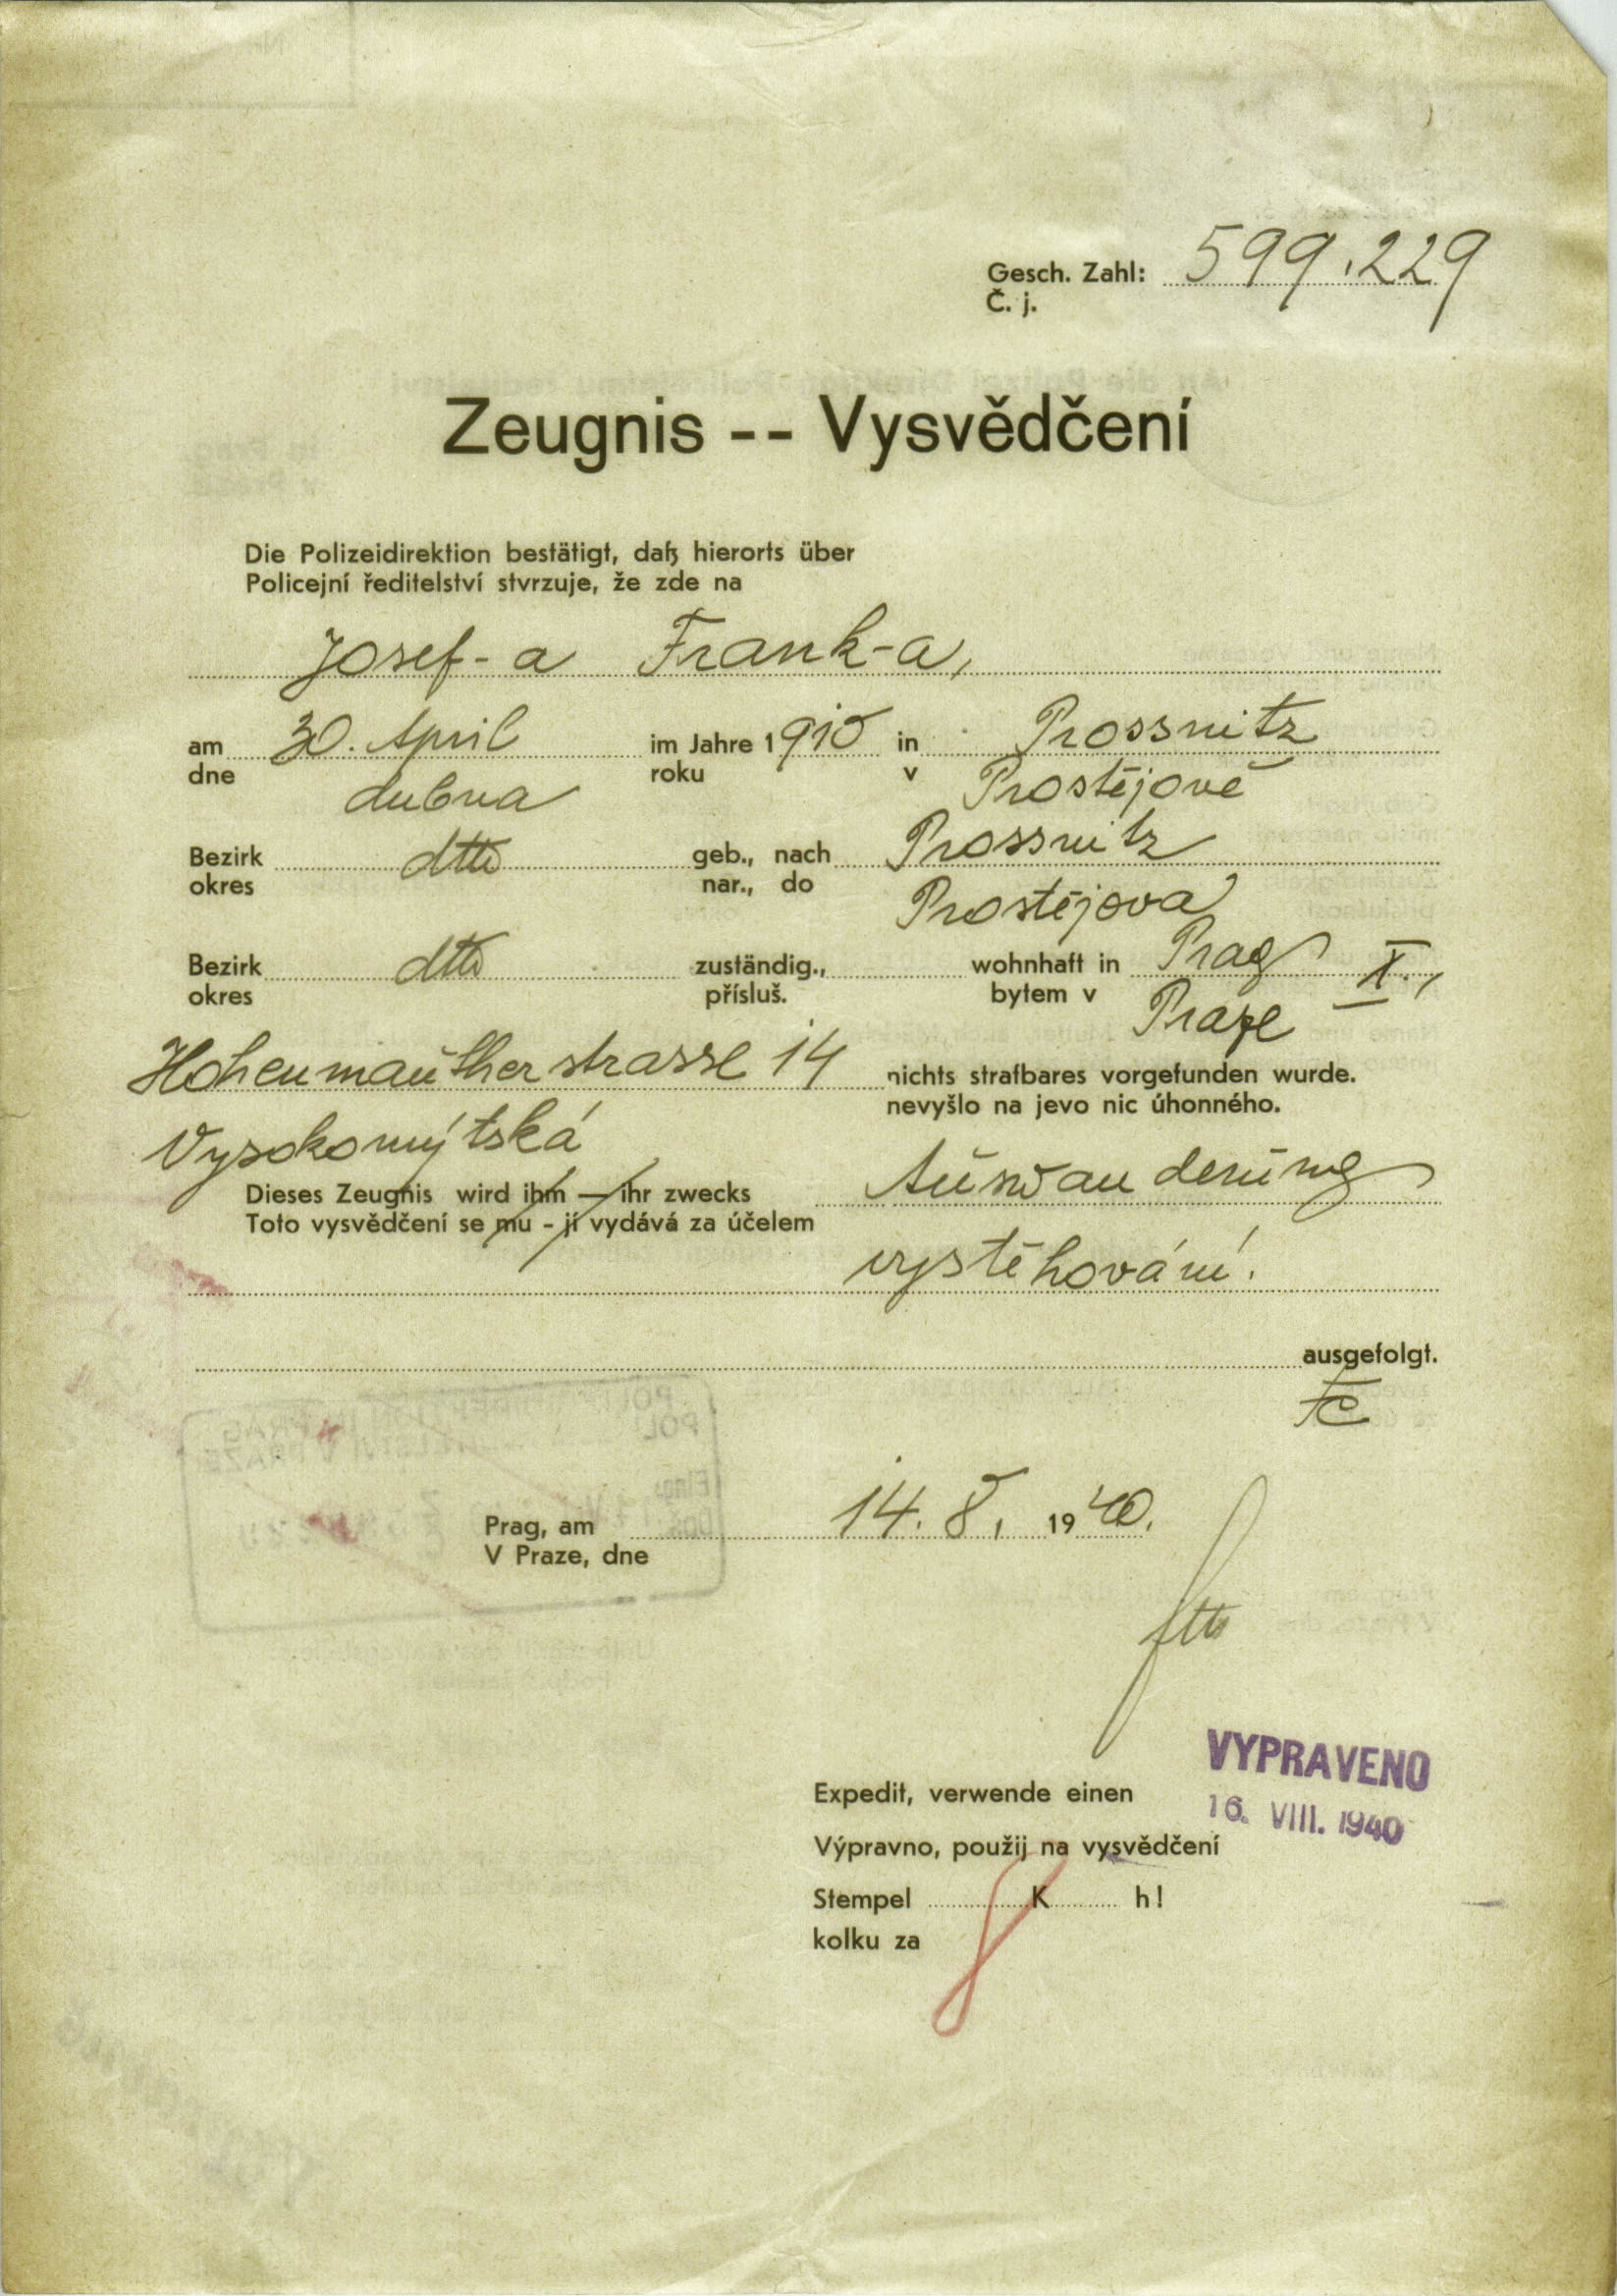 Gesch. Zahl: 599.229
Č. j.
Zeugnis -- Vysvědčení
Die Polizeidirektion bestätigt, daß hierorts über
Policejní ředitelství stvrzuje, že zde na
Josef-a Frank-a,
am 30. April im Jahre 1910 in Prossnitz
dne dubna roku v Prostějově
Bezirk dtto geb., nach Prossnitz
okres nar., do Prostějova
Bezirk dtto zuständig., wohnhaft in Prag X.,
okres přísluš. bytem v Praze
Hohenmautherstrasse 14 nichts strafbares vorgefunden wurde.
Vysokomýtská nevyšlo na jevo nic úhonného.
Dieses Zeugnis wird ihm — ihr zwecks Auswanderung
Toto vysvědčení se mu - jí vydává za účelem
vystěhování.
ausgefolgt.
Prag, am 14. 8. 1940.
V Praze, dne
VYPRAVENO
16. VIII. 1940
Expedit, verwende einen
Výpravno, použij na vysvědčení
Stempel K h!
kolku za